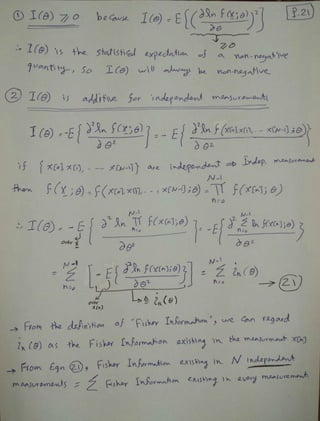 P.21
① I(θ) ≥ 0 because I(θ) = E{(∂ ln f(x;θ)/∂θ)²}
≥0
∴ I(θ) is the statistical expectation of a non-negative
quantity, so I(θ) will always be nonnegative.
② I(θ) is additive for independent measurements
I(θ) = -E{∂² ln f(x;θ)/∂θ²} = -E{∂² ln f(x[0] x[1], ... x[N-1];θ)/∂θ²}
if {x[0] x[1], ... x[N-1]} are independent ⇒ Indep. measurement
then f(x;θ) = f(x[0] x[1], ... x[N-1];θ) = ∏_{n=0}^{N-1} f(x[n];θ)
∴ I(θ) = -E{∂² ln ∏_{n=0}^{N-1} f(x[n];θ)/∂θ²} = -E{∂² ∑_{n=0}^{N-1} ln f(x[n];θ)/∂θ²}
over x
= ∑_{n=0}^{N-1} [-E{∂² ln f(x[n];θ)/∂θ²}] = ∑_{n=0}^{N-1} i_n(θ) → (21)
over x[n] → i_n(θ)
→ From the definition of "Fisher Information", we can regard
i_n(θ) as the Fisher Information existing in the measurement x[n]
→ From Eqn (21), Fisher Information existing in N independent
measurements = ∑ Fisher Information existing in every measurement